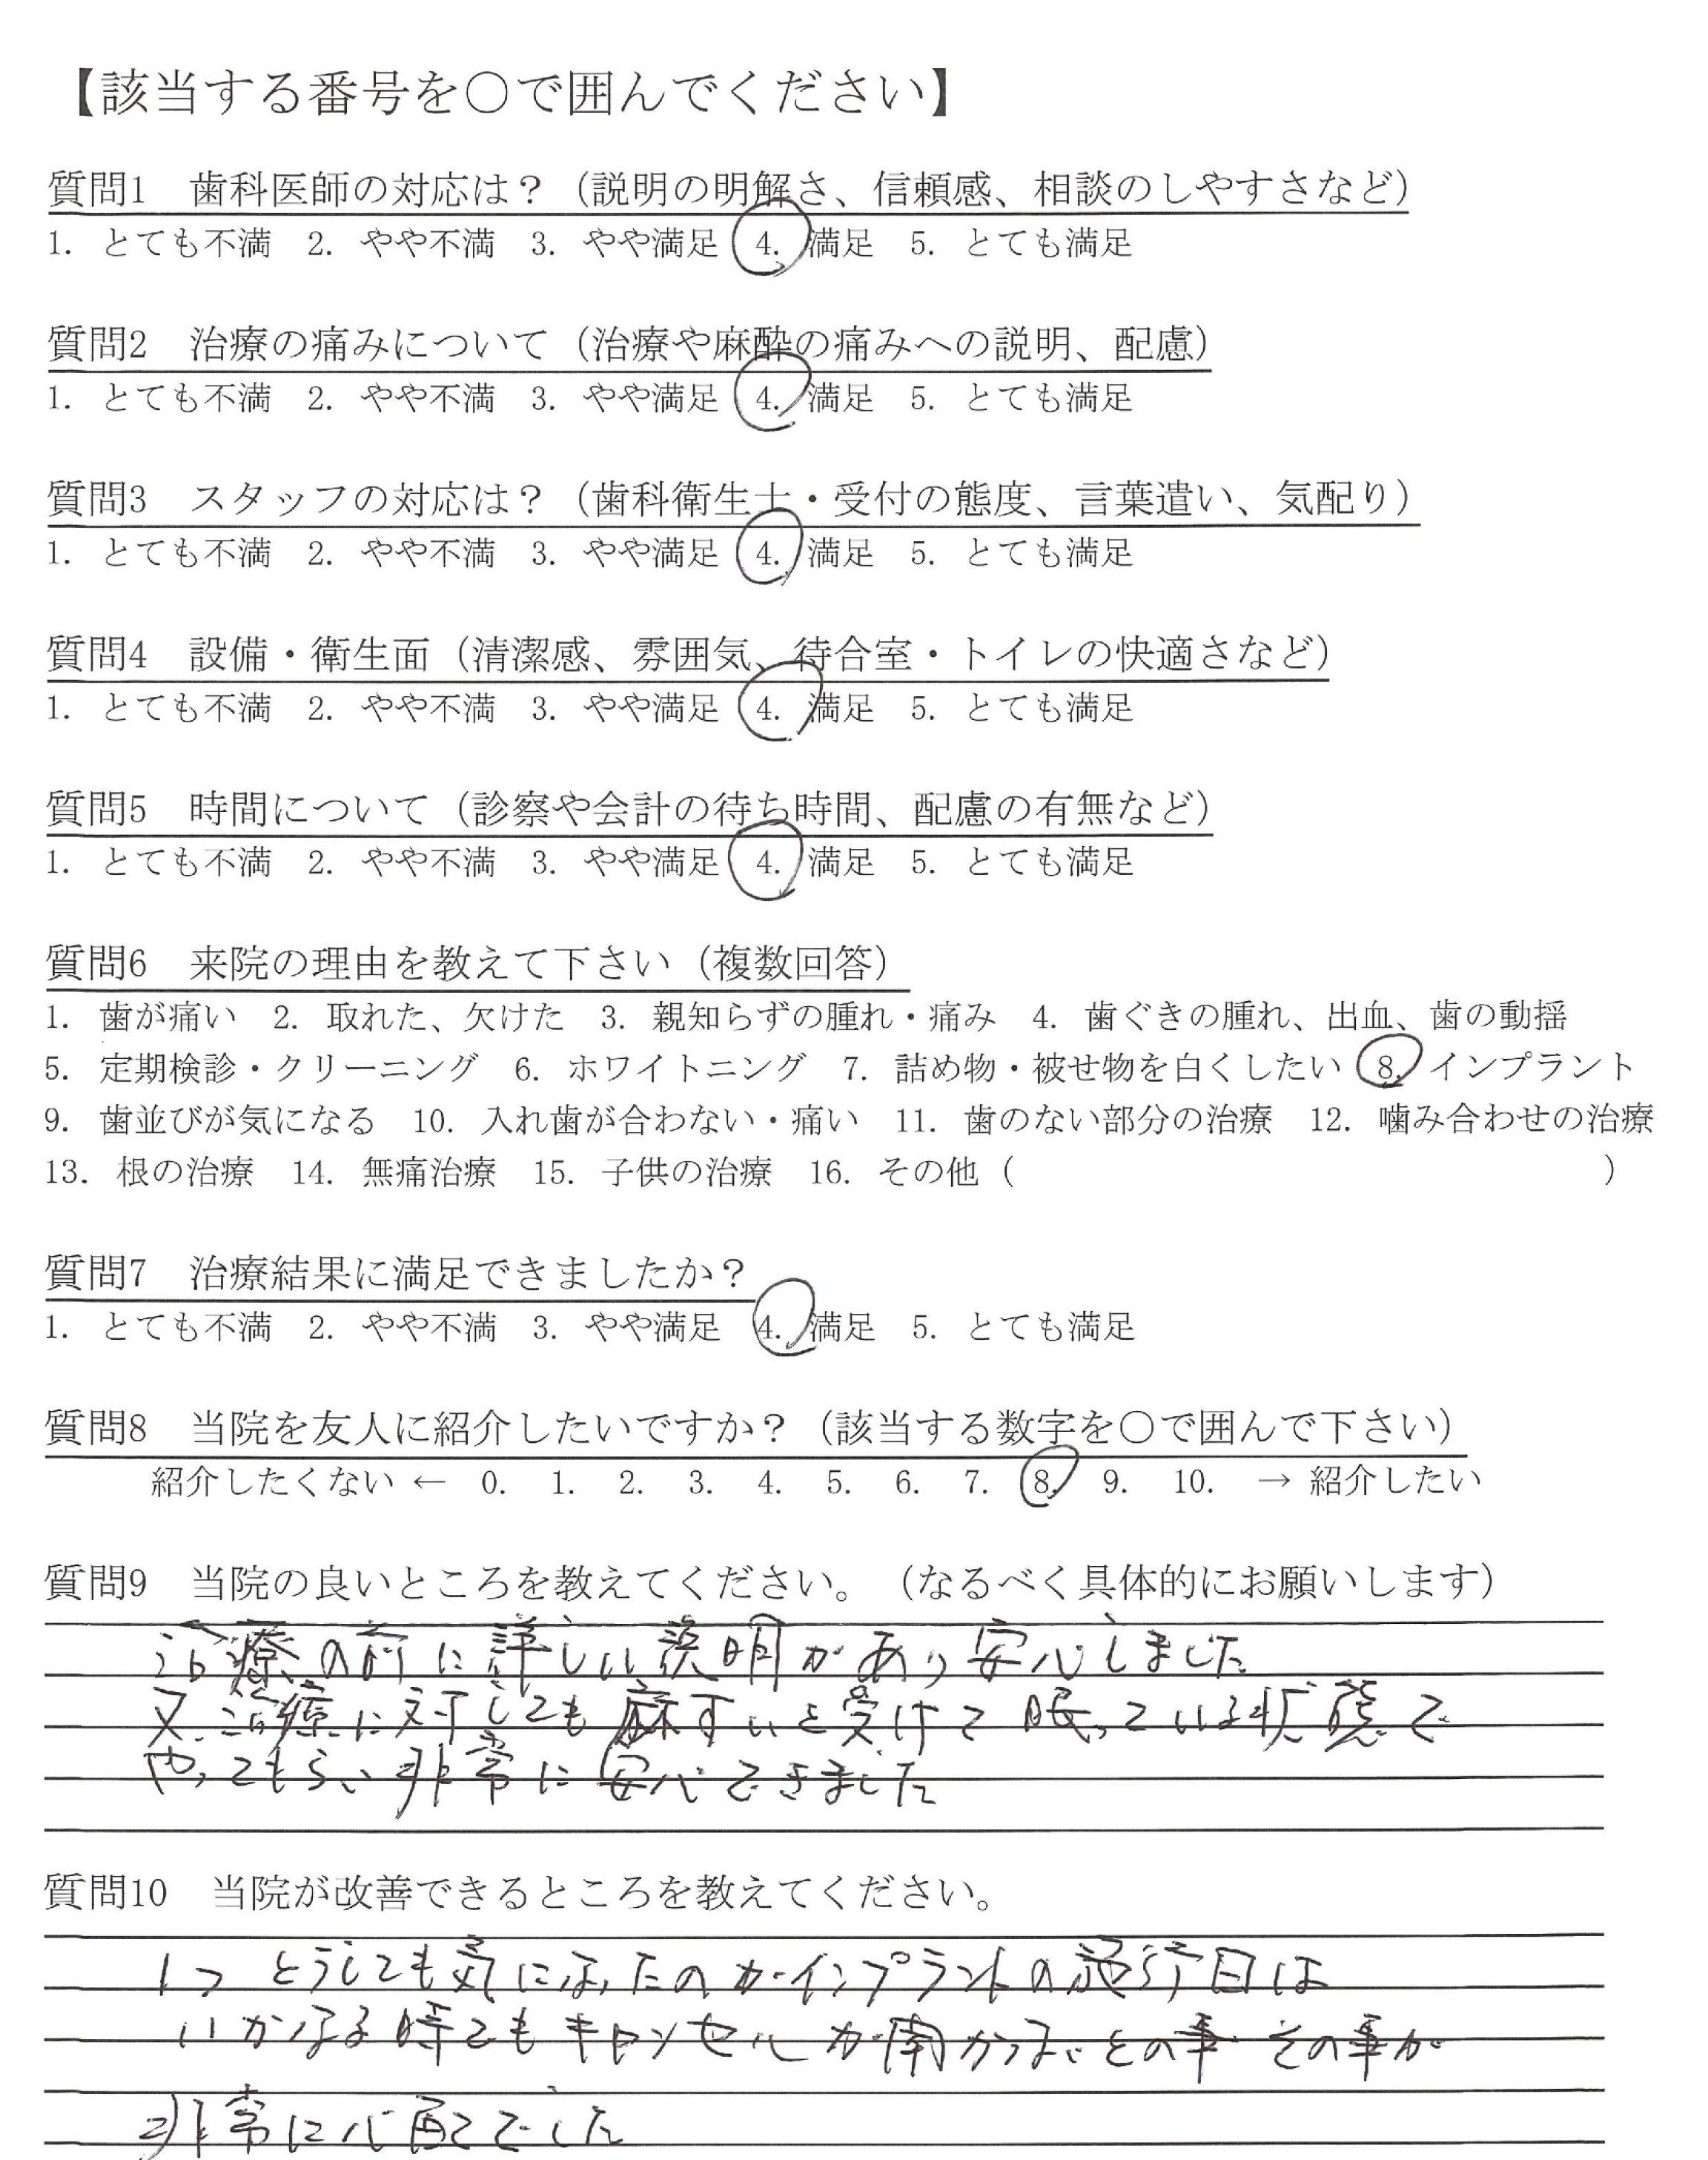 【該当する番号を○で囲んでください】
質問1　歯科医師の対応は？（説明の明解さ、信頼感、相談のしやすさなど）
1. とても不満　2. やや不満　3. やや満足　4. 満足　5. とても満足
質問2　治療の痛みについて（治療や麻酔の痛みへの説明、配慮）
1. とても不満　2. やや不満　3. やや満足　4. 満足　5. とても満足
質問3　スタッフの対応は？（歯科衛生士・受付の態度、言葉遣い、気配り）
1. とても不満　2. やや不満　3. やや満足　4. 満足　5. とても満足
質問4　設備・衛生面（清潔感、雰囲気、待合室・トイレの快適さなど）
1. とても不満　2. やや不満　3. やや満足　4. 満足　5. とても満足
質問5　時間について（診察や会計の待ち時間、配慮の有無など）
1. とても不満　2. やや不満　3. やや満足　4. 満足　5. とても満足
質問6　来院の理由を教えて下さい（複数回答）
1. 歯が痛い　2. 取れた、欠けた　3. 親知らずの腫れ・痛み　4. 歯ぐきの腫れ、出血、歯の動揺
5. 定期検診・クリーニング　6. ホワイトニング　7. 詰め物・被せ物を白くしたい　8. インプラント
9. 歯並びが気になる　10. 入れ歯が合わない・痛い　11. 歯のない部分の治療　12. 噛み合わせの治療
13. 根の治療　14. 無痛治療　15. 子供の治療　16. その他（　　　　　　　　）
質問7　治療結果に満足できましたか？
1. とても不満　2. やや不満　3. やや満足　4. 満足　5. とても満足
質問8　当院を友人に紹介したいですか？（該当する数字を○で囲んで下さい）
紹介したくない ← 0. 1. 2. 3. 4. 5. 6. 7. 8. 9. 10. → 紹介したい
質問9　当院の良いところを教えてください。（なるべく具体的にお願いします）
治療の前に詳しい説明があり安心しました
又、治療に対しても麻すいを受けて眠っている状態で
やってもらい非常に安心できました
質問10　当院が改善できるところを教えてください。
1つ どうしても気になったのがインプラントの施行日は
いかなる時でもキャンセルが効かないとの事 その事が
非常に心配でした